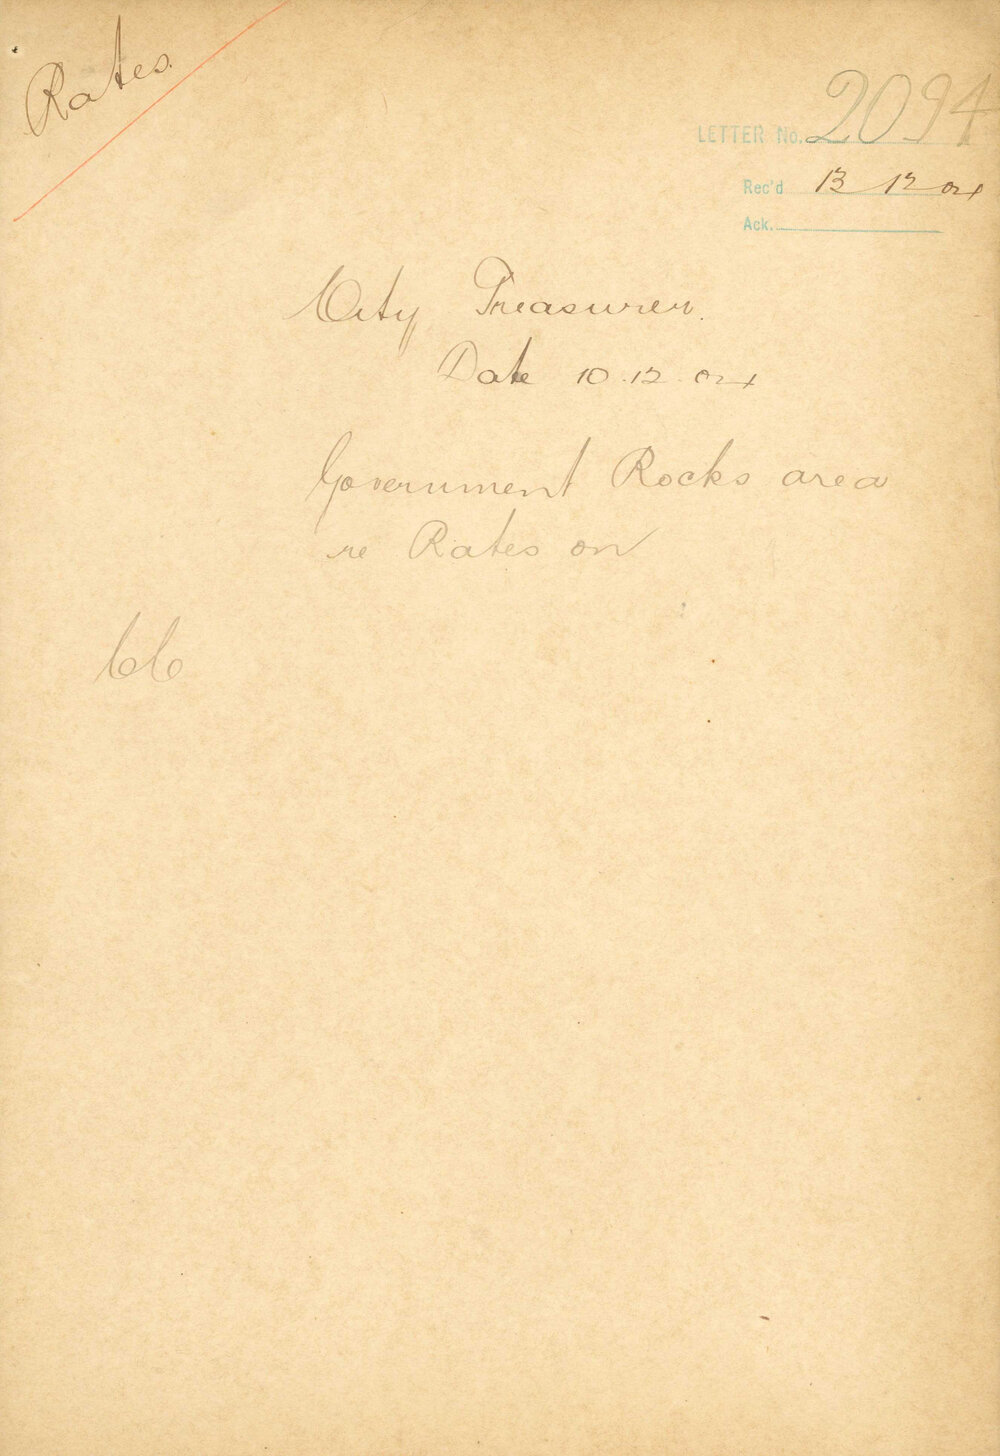 Rates.
LETTER No. 2094
Rec'd 13 12 04
Ack.
City Treasurer.
Date 10.12.04
Government Rocks area
re Rates on